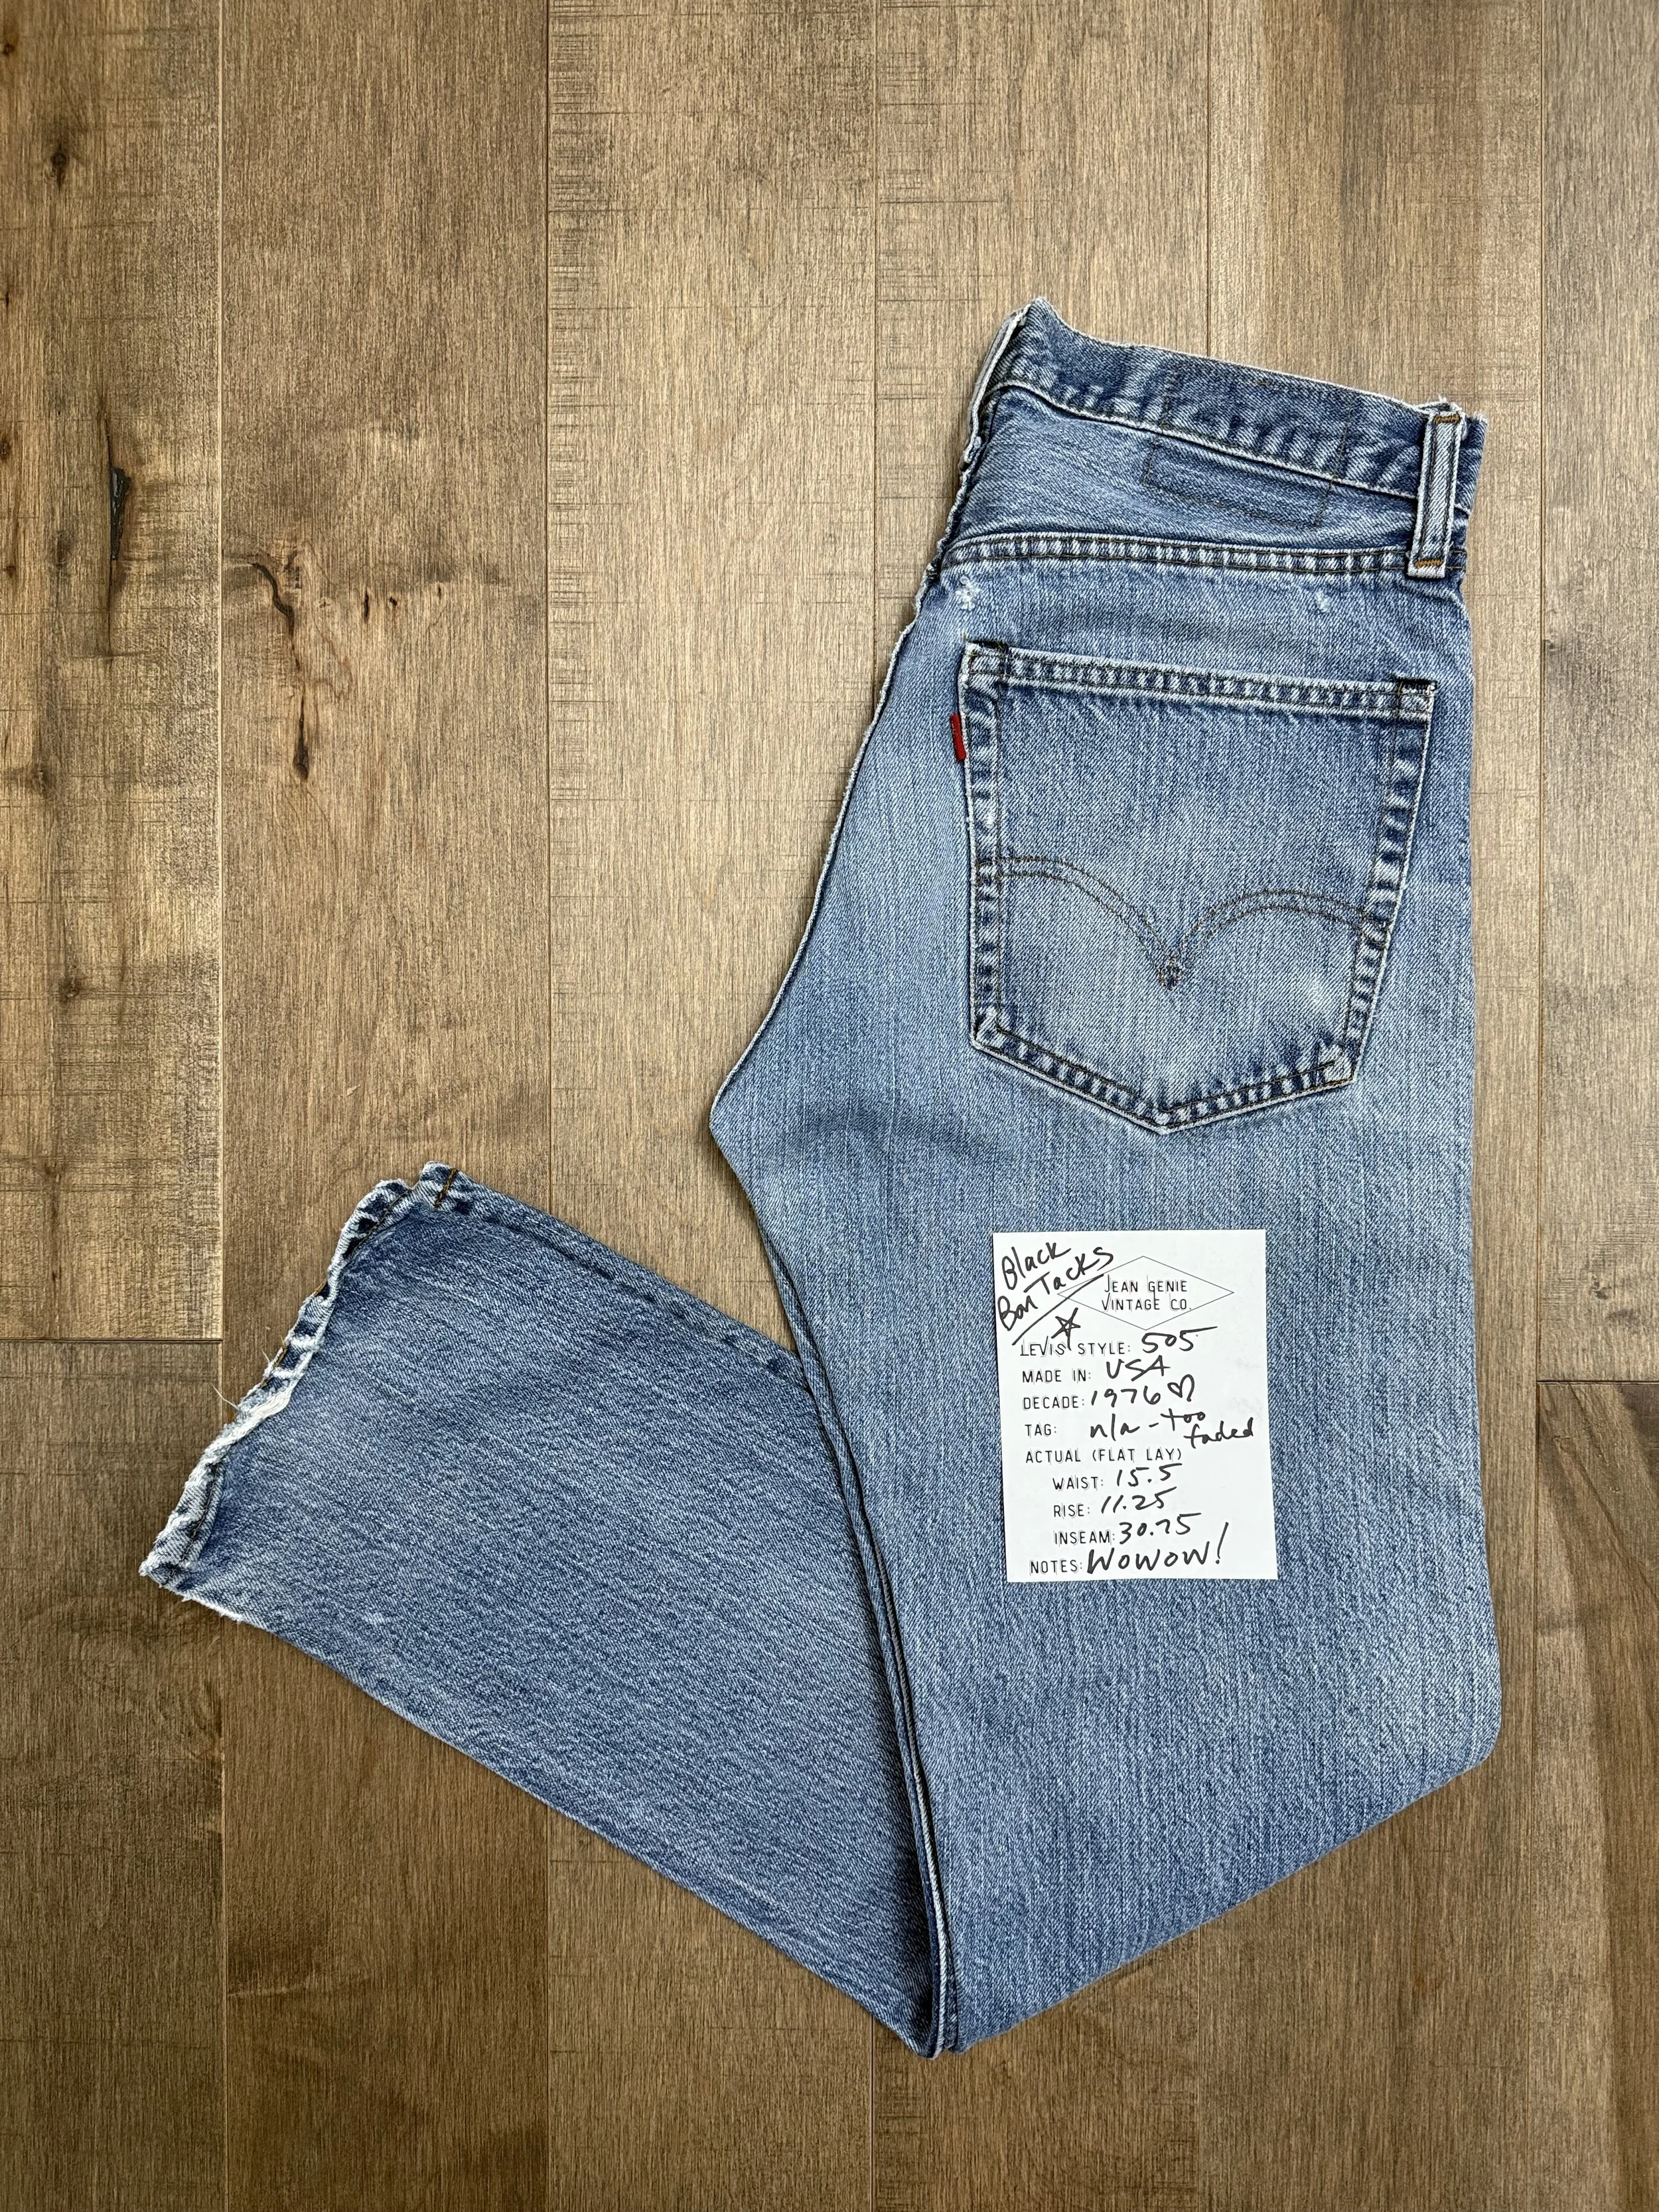 Black
Bar Tacks
JEAN GENIE
VINTAGE CO.
LEVIS STYLE: 505
MADE IN: USA
DECADE: 1976 ♡
TAG: n/a - too
faded
ACTUAL (FLAT LAY)
WAIST: 15.5
RISE: 11.25
INSEAM: 30.75
NOTES: WOWOW!